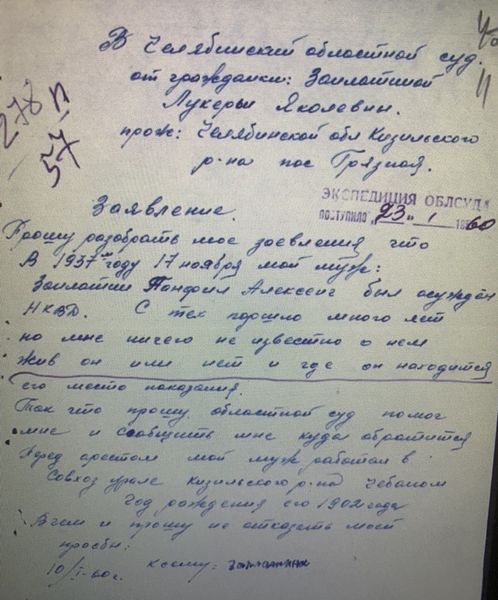 В Челябинский областной суд.
от гражданки: Заплатиной
Лукерьи Яковлевны.
прож: Челябинской обл Кизильского
р-на пос Грязнов.
278 п
57
ЭКСПЕДИЦИЯ ОБЛСУДА
ПОСТУПИЛО „23" 1 1960
Заявление.
Прошу разобрать мое заевления что
В 1937 году 17 ноября мой муж:
Заплатин Панфил Алексеиг был осуждён
НКВД. С тех порошло много лет
но мне ничего не известно о нем
жив он или нет и где он находится
его место показания.
Так что прошу областной суд помог
мне и сообщить мне куда обратится
Перед арестом мой муж работал в
Совхоз урале Кизильского р-на Чебаном
Год рождения его 1902 года
В чем и прошу не отказать моей
просьбы:
10/I-60г. к сему: